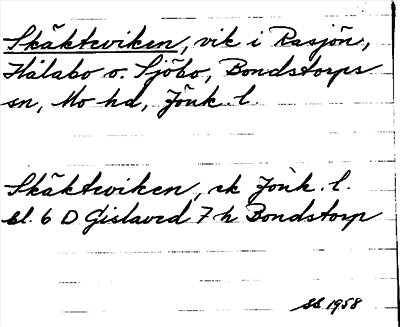 Skäkteviken, vik i Rasjön,
Hålabo o. Sjöbo, Bondstorps
sn, Mo hd, Jönk. l.
Skäkteviken, rk Jönk. l.
bl. 6 D Gislaved 7 h Bondstorp
SS 1958